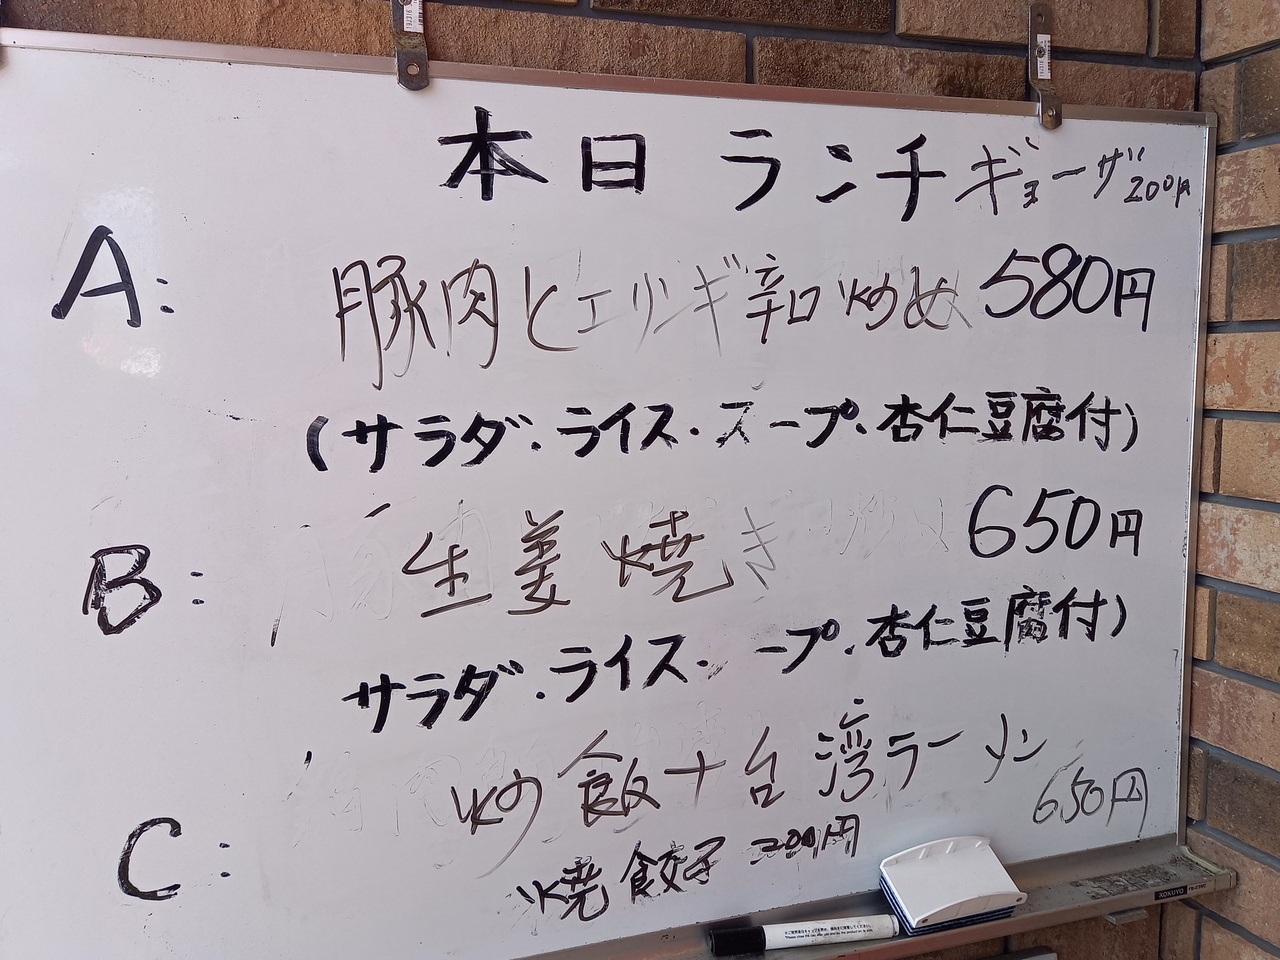 本日 ランチ ギョーザ 200円
A: 豚肉とエリンギ辛口炒め 580円
(サラダ・ライス・スープ・杏仁豆腐付)
B: 生姜焼き 650円
サラダ・ライス・ ープ・杏仁豆腐付)
C: 炒飯+台湾ラーメン 650円
焼餃子 200円
KOKUYO